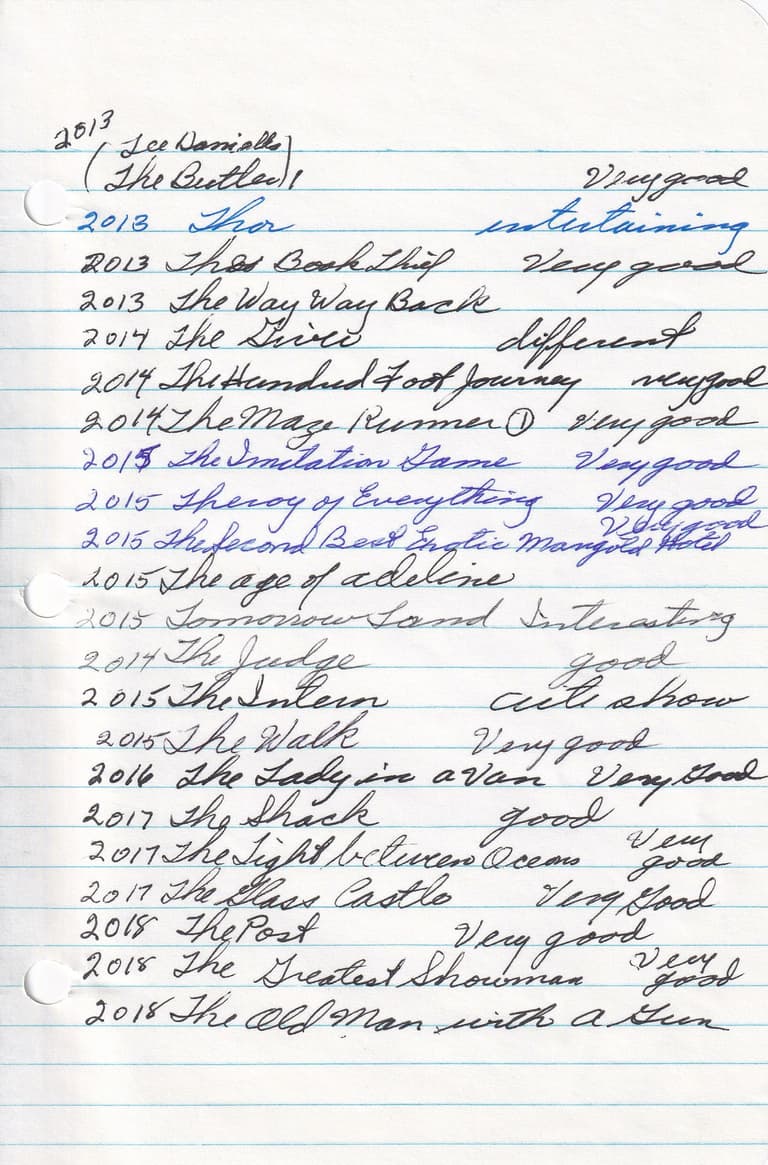 2013
(Lee Daniells)
(The Butler) Very good
2013 Thor entertaining
2013 The Book Thief Very good
2013 The Way Way Back
2014 The Giver different
2014 The Hundred Foot Journey very good
2014 The Maze Runner ① Very good
2015 The Imitation Game Very good
2015 Theroy of Everything Very good
Very good
2015 The Second Best Exotic Marigold Hotel
2015 The age of adeline
2015 Tomorrow Land Interesting
2014 The Judge good
2015 The Intern cute show
2015 The Walk Very good
2016 The Lady in a Van Very Good
2017 The Shack good
2017 The Light between Oceans Very
good
2017 The Glass Castle Very Good
2018 The Post Very good
2018 The Greatest Showman Very
good
2018 The Old Man with a Gun